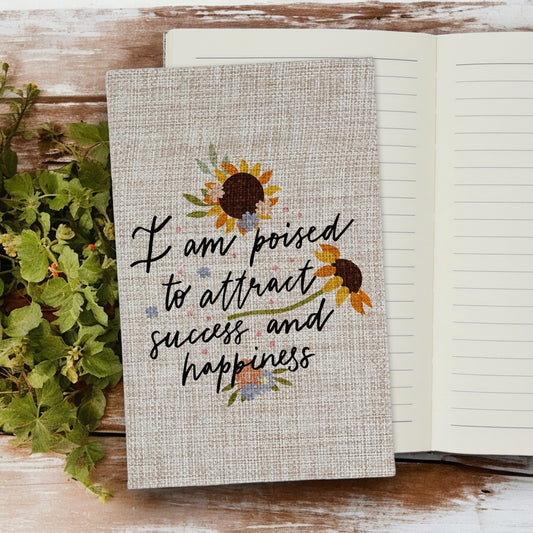 I am poised
to attract
success and
happiness